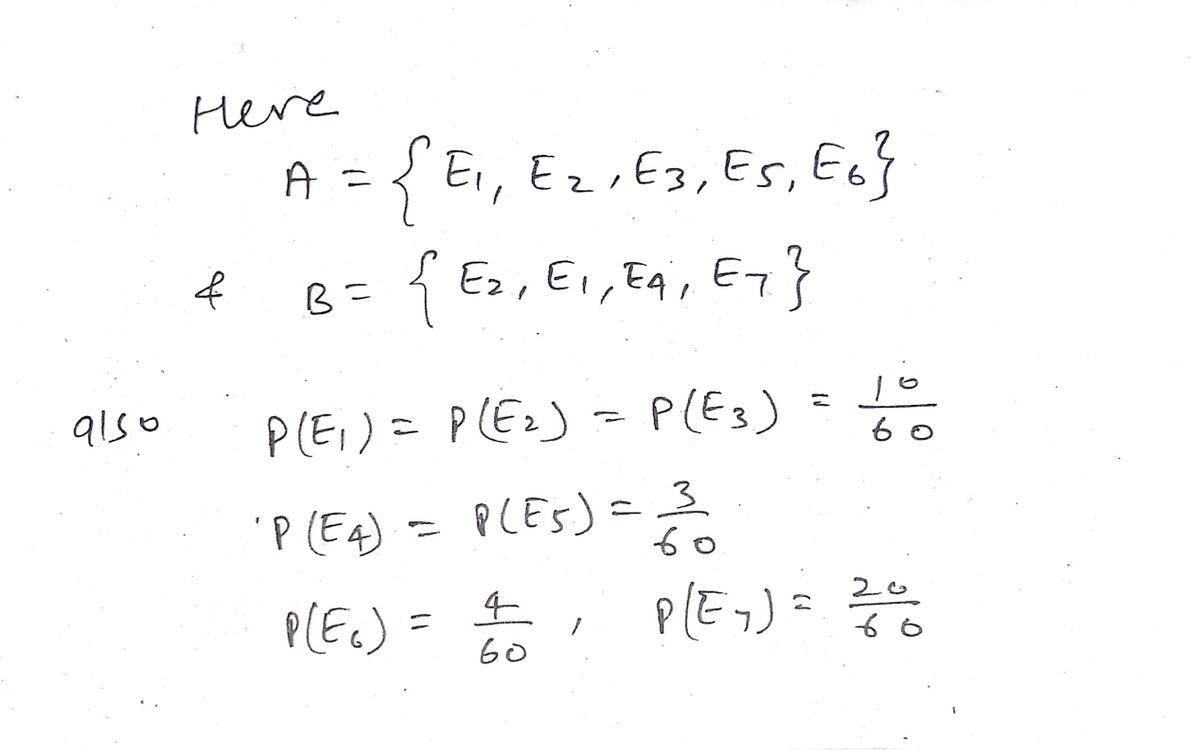 Here
A = { E₁, E₂, E₃, E₅, E₆}
& B = { E₂, E₁, E₄, E₇}
also P(E₁) = P(E₂) = P(E₃) = 10/60
P(E₄) = P(E₅) = 3/60
P(E₆) = 4/60 , P(E₇) = 20/60